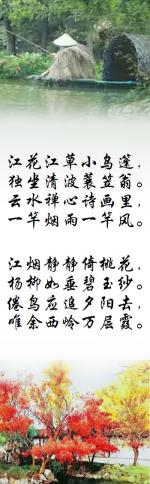 江花江草小乌蓬，
独坐清波蓑笠翁。
云水禅心诗画里，
一竿烟雨一竿风。
江烟静静倚桃花，
杨柳如垂碧玉纱。
倦鸟应追夕阳去，
唯余西岭万层霞。